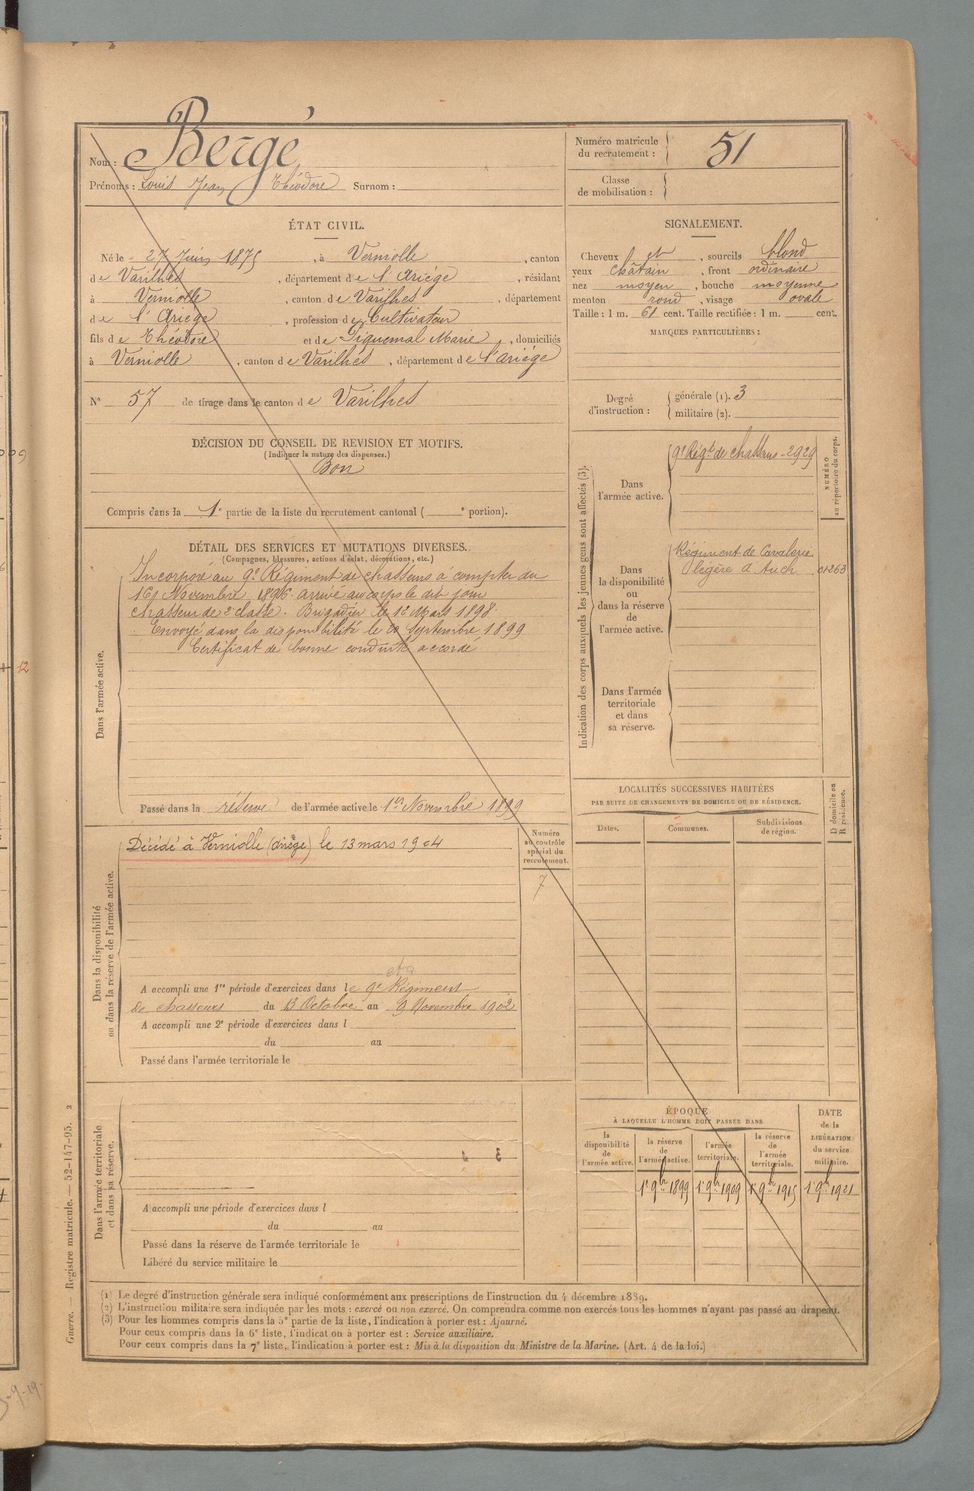 Nom : Bergé
Prénoms : Louis Jean Théodore Surnom :
Numéro matricule du recrutement : 51
Classe de mobilisation :
ÉTAT CIVIL.
Né le 27 Juin 1875, à Verniolle, canton
de Varilhes, département de l'Ariège, résidant
à Verniolle, canton de Varilhes, département
de l'Ariège, profession de Cultivateur
fils de Théodore et de Piquemal Marie, domiciliés
à Verniolle, canton de Varilhes, département de l'ariège
N° 57 de tirage dans le canton de Varilhes
SIGNALEMENT.
Cheveux et, sourcils blond
yeux châtain, front ordinaire
nez moyen, bouche moyenne
menton rond, visage ovale
Taille : 1 m. 61 cent. Taille rectifiée : 1 m. cent.
MARQUES PARTICULIÈRES :
Degré d'instruction : générale (1). 3
militaire (2).
DÉCISION DU CONSEIL DE REVISION ET MOTIFS.
(Indiquer la nature des dispenses.)
Bon
Compris dans la 1e partie de la liste du recrutement cantonal ( e portion).
DÉTAIL DES SERVICES ET MUTATIONS DIVERSES.
(Campagnes, blessures, actions d'éclat, décorations, etc.)
Dans l'armée active.
Incorporé au 9e Régiment de chasseurs à compter du
16 Novembre 1896. arrivé au corps le dit jour
chasseur de 2e classe. Brigadier le 1er Mars 1898
Envoyé dans la disponibilité le 20 Septembre 1899
Certificat de bonne conduite accordé
Passé dans la réserve de l'armée active le 1er Novembre 1899
Indication des corps auxquels les jeunes gens sont affectés (3).
NUMÉRO au répertoire du corps.
Dans l'armée active.
9e Régt de chasseurs - 2929
Dans la disponibilité ou dans la réserve de l'armée active.
Régiment de Cavalerie
légère d'Auch 01263
Dans l'armée territoriale et dans sa réserve.
Dans la disponibilité ou dans la réserve de l'armée active.
Décédé à Verniolle (ariège) le 13 mars 1904
Numéro au contrôle spécial du recrutement.
7
A accompli une 1re période d'exercices dans le 9e Régiment
de chasseurs du 13 Octobre au 9 Novembre 1902
A accompli une 2e période d'exercices dans l
du au
Passé dans l'armée territoriale le
LOCALITÉS SUCCESSIVES HABITÉES
PAR SUITE DE CHANGEMENTS DE DOMICILE OU DE RÉSIDENCE.
Dates.
Communes.
Subdivisions de région.
D domicile ou R résidence.
Dans l'armée territoriale et dans sa réserve.
A accompli une période d'exercices dans l
du au
Passé dans la réserve de l'armée territoriale le
Libéré du service militaire le
ÉPOQUE
À LAQUELLE L'HOMME DOIT PASSER DANS
la disponibilité de l'armée active.
la réserve de l'armée active.
l'armée territoriale.
la réserve de l'armée territoriale.
DATE de la LIBÉRATION du service militaire.
1er 9bre 1899
1er 9bre 1909
1er 9bre 1915
1er 9bre 1921
(1) Le degré d'instruction générale sera indiqué conformément aux prescriptions de l'instruction du 4 décembre 1889.
(2) L'instruction militaire sera indiquée par les mots : exercé ou non exercé. On comprendra comme non exercés tous les hommes n'ayant pas passé au drapeau.
(3) Pour les hommes compris dans la 5e partie de la liste, l'indication à porter est : Ajourné.
Pour ceux compris dans la 6e liste, l'indication à porter est : Service auxiliaire.
Pour ceux compris dans la 7e liste, l'indication à porter est : Mis à la disposition du Ministre de la Marine. (Art. 4 de la loi.)
Guerre. Registre matricule. — 52-147-95.